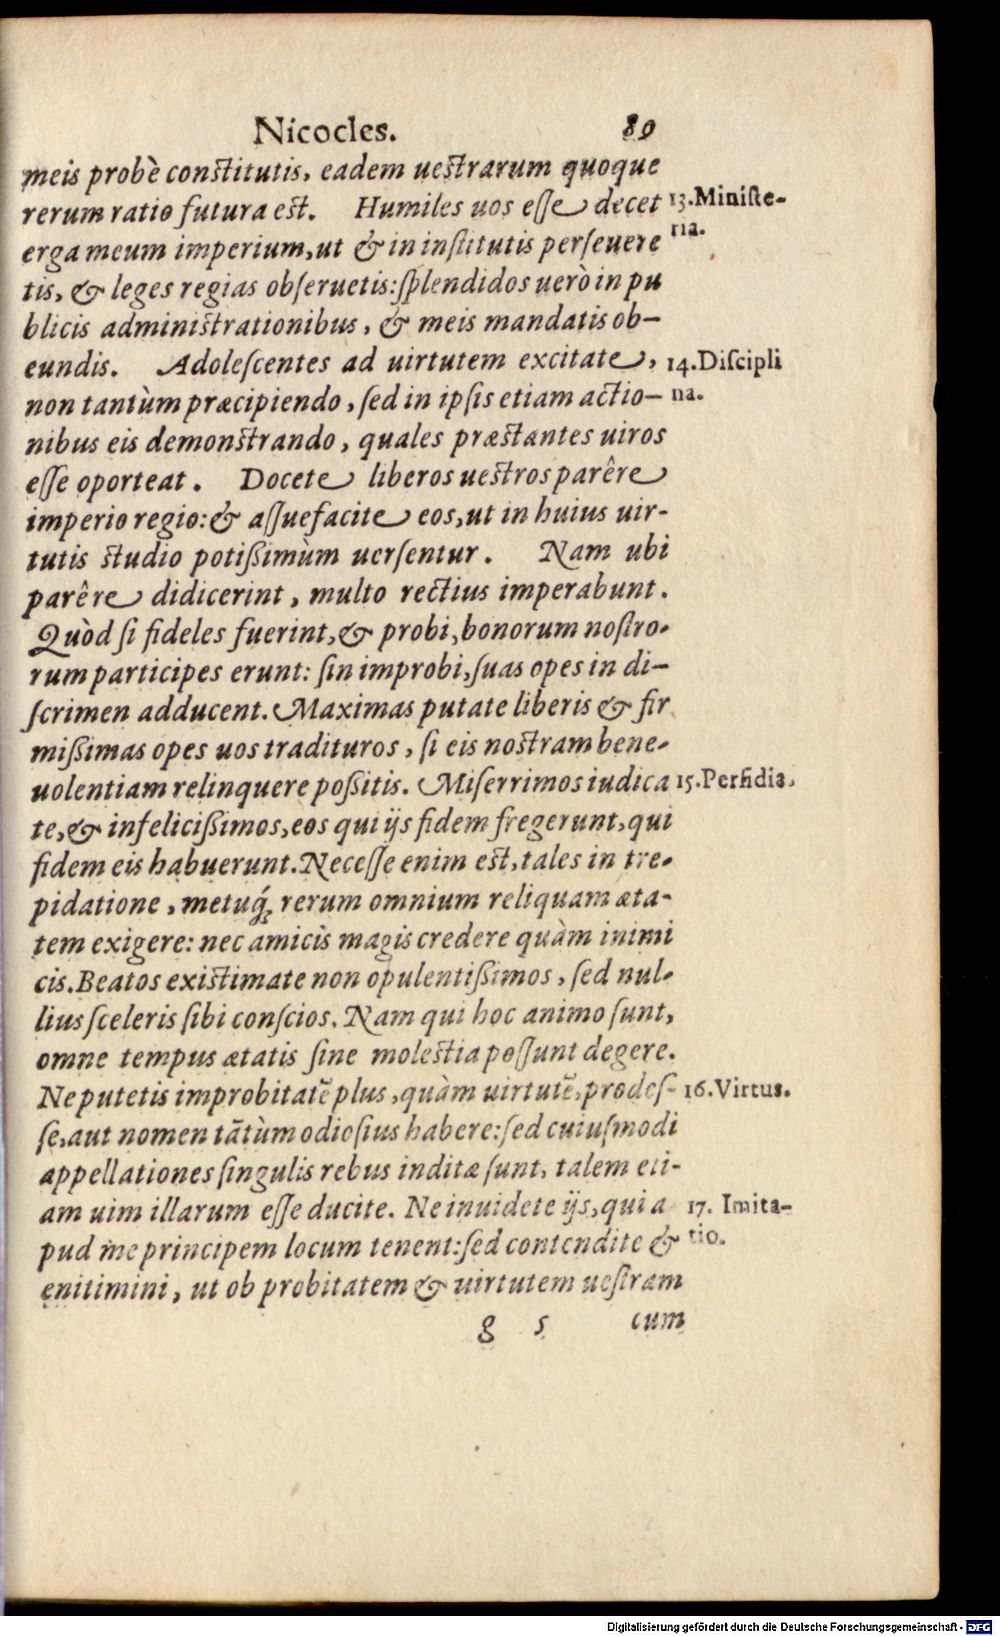 Nicocles. 89
meis probè constitutis, eadem uestrarum quoque
rerum ratio futura est. Humiles uos esse decet 13. Ministe-
erga meum imperium, ut & in institutis perseuere ria.
tis, & leges regias obseruetis: splendidos uerò in pu
blicis administrationibus, & meis mandatis ob-
eundis. Adolescentes ad uirtutem excitate, 14. Discipli
non tantùm præcipiendo, sed in ipsis etiam actio- na.
nibus eis demonstrando, quales præstantes uiros
esse oporteat. Docete liberos uestros parêre
imperio regio: & assuefacite eos, ut in huius uir-
tutis studio potißimùm uersentur. Nam ubi
parêre didicerint, multo rectius imperabunt.
Quòd si fideles fuerint, & probi, bonorum nostro-
rum participes erunt: sin improbi, suas opes in di-
scrimen adducent. Maximas putate liberis & fir
mißimas opes uos tradituros, si eis nostram bene-
uolentiam relinquere poßitis. Miserrimos iudica 15. Perfidia.
te, & infelicißimos, eos qui ijs fidem fregerunt, qui
fidem eis habuerunt. Necesse enim est, tales in tre-
pidatione, metuq́; rerum omnium reliquam æta-
tem exigere: nec amicis magis credere quàm inimi
cis. Beatos existimate non opulentißimos, sed nul-
lius sceleris sibi conscios. Nam qui hoc animo sunt,
omne tempus ætatis sine molestia possunt degere.
Ne putetis improbitatẽ plus, quàm uirtutẽ, prodes- 16. Virtus.
se, aut nomen tãtùm odiosius habere: sed cuiusmodi
appellationes singulis rebus inditæ sunt, talem eti-
am uim illarum esse ducite. Ne inuidete ijs, qui a 17. Imita-
pud me principem locum tenent: sed contendite & tio.
enitimini, ut ob probitatem & uirtutem uestram
g 5 cum
Digitalisierung gefördert durch die Deutsche Forschungsgemeinschaft - DFG